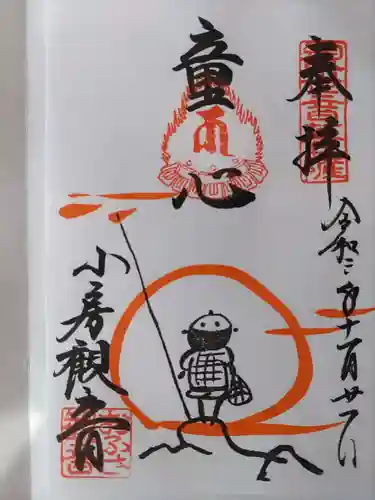 奉拝
令和二年十一月廿一日
童心
小房観音